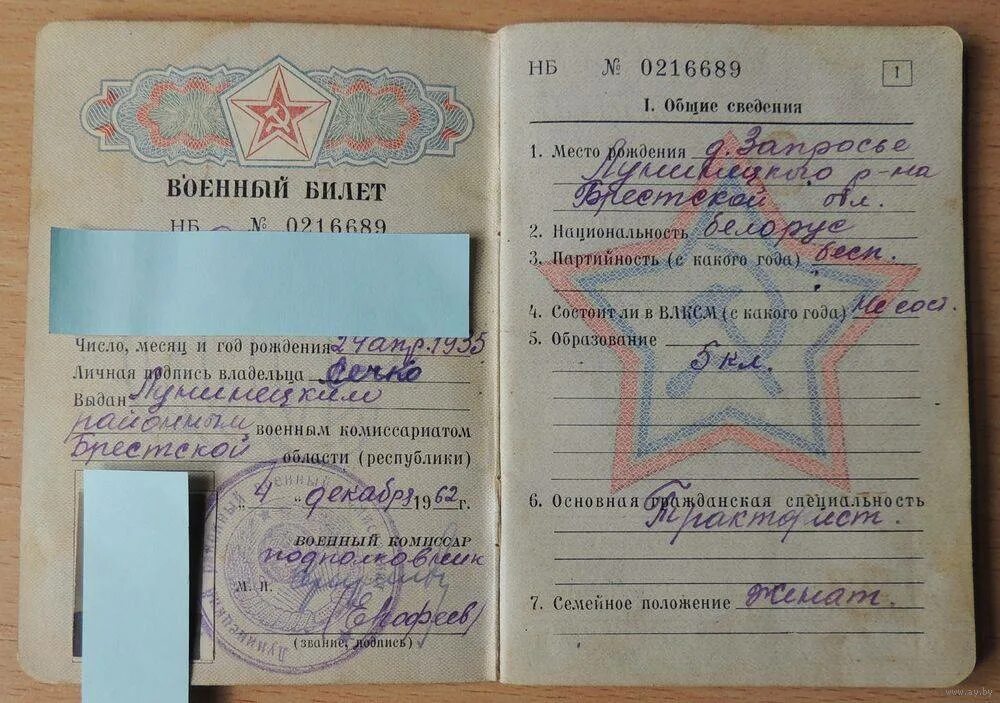 ВОЕННЫЙ БИЛЕТ
НБ № 0216689
Число, месяц и год рождения 24 апр. 1935
Личная подпись владельца Сечко
Выдан Лунинецким
районным военным комиссариатом
Брестской области (республики)
"4" декабря 1962 г.
ВОЕННЫЙ КОМИССАР
подполковник
М. П.
(Ерофеев)
(звание, подпись)
НБ № 0216689
1
I. Общие сведения
1. Место рождения д. Запросье
Лунинецкого р-на
Брестской обл.
2. Национальность белорус
3. Партийность (с какого года) бесп.
4. Состоит ли в ВЛКСМ (с какого года) Не сост.
5. Образование
5 кл.
6. Основная гражданская специальность
Тракторист.
7. Семейное положение женат.
www.ay.by